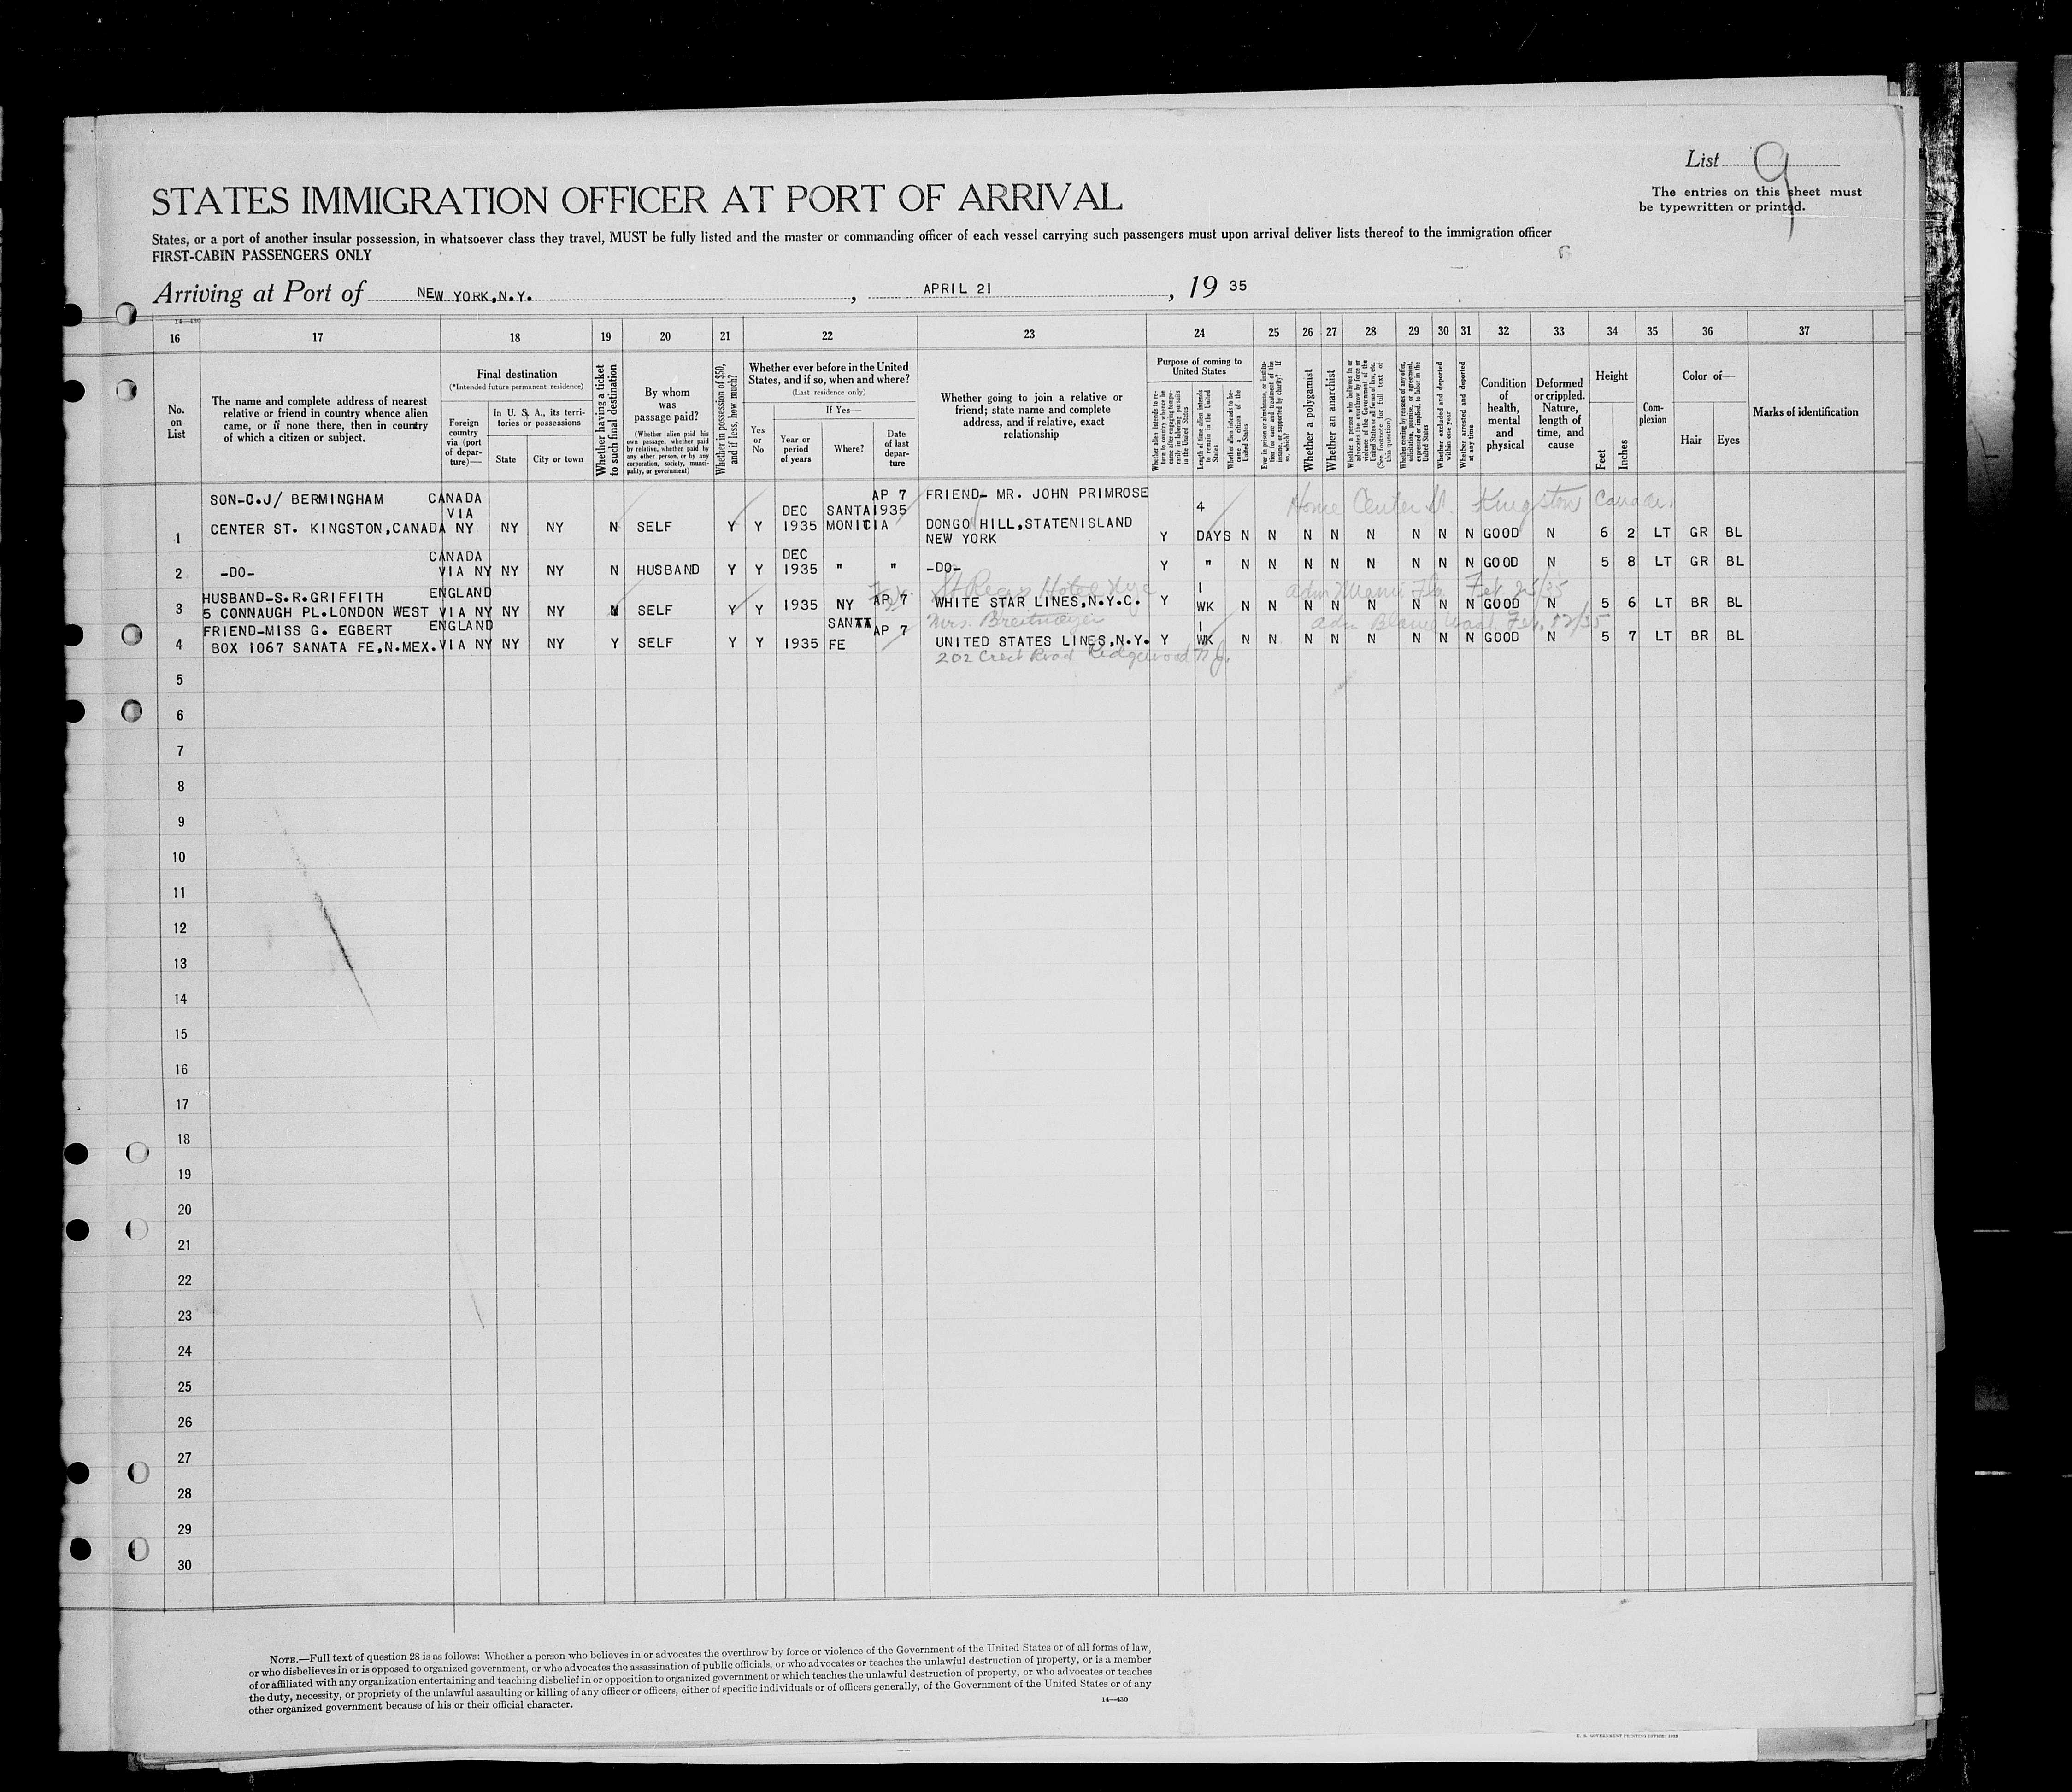 List 9
The entries on this sheet must
be typewritten or printed.
STATES IMMIGRATION OFFICER AT PORT OF ARRIVAL
States, or a port of another insular possession, in whatsoever class they travel, MUST be fully listed and the master or commanding officer of each vessel carrying such passengers must upon arrival deliver lists thereof to the immigration officer
FIRST-CABIN PASSENGERS ONLY
Arriving at Port of NEW YORK,N.Y. , APRIL 21 , 19 35
14—430
16 17 18 19 20 21 22 23 24 25 26 27 28 29 30 31 32 33 34 35 36 37
No.
on
List
The name and complete address of nearest
relative or friend in country whence alien
came, or if none there, then in country
of which a citizen or subject.
Final destination
(*Intended future permanent residence)
Foreign
country
via (port
of depar-
ture)—
In U. S. A., its terri-
tories or possessions
State
City or town
Whether having a ticket
to such final destination
By whom
was
passage paid?
(Whether alien paid his
own passage, whether paid
by relative, whether paid by
any other person, or by any
corporation, society, munici-
pality, or government)
Whether in possession of $50,
and if less, how much?
Whether ever before in the United
States, and if so, when and where?
(Last residence only)
Yes
or
No
If Yes—
Year or
period
of years
Where?
Date
of last
depar-
ture
Whether going to join a relative or
friend; state name and complete
address, and if relative, exact
relationship
Purpose of coming to
United States
Whether alien intends to re-
turn to country whence he
came after engaging tempo-
rarily in laboring pursuits
in the United States
Length of time alien intends
to remain in the United
States
Whether alien intends to be-
come a citizen of the
United States
Ever in prison or almshouse, or institu-
tion for care and treatment of the
insane, or supported by charity? If
so, which?
Whether a polygamist
Whether an anarchist
Whether a person who believes in or
advocates the overthrow by force or
violence of the Government of the
United States or all forms of law, etc.
(See footnote for full text of
this question)
Whether coming by reasons of any offer,
solicitation, promise, or agreement,
expressed or implied, to labor in the
United States
Whether excluded and deported
within one year
Whether arrested and deported
at any time
Condition
of
health,
mental
and
physical
Deformed
or crippled.
Nature,
length of
time, and
cause
Height
Feet
Inches
Com-
plexion
Color of—
Hair
Eyes
Marks of identification
SON-C.J/ BERMINGHAM CANADA AP 7 FRIEND- MR. JOHN PRIMROSE
VIA DEC SANTA 1935 4 Home Center St. Kingston Canada.
1 CENTER ST. KINGSTON,CANADA NY NY NY N SELF Y Y 1935 MONICIA DONGO HILL,STATENISLAND
NEW YORK Y DAYS N N N N N N N N GOOD N 6 2 LT GR BL
CANADA DEC
2 -DO- VIA NY NY NY N HUSBAND Y Y 1935 " " -DO- Y " N N N N N N N N GOOD N 5 8 LT GR BL
HUSBAND-S.R.GRIFFITH ENGLAND St Regis Hotel 1 adm Miami Fla Feb 25/35
3 5 CONNAUGH PL.LONDON WEST VIA NY NY NY N SELF Y Y 1935 NY AP 7 WHITE STAR LINES,N.Y.C. Y WK N N N N N N N N GOOD N 5 6 LT BR BL
FRIEND-MISS G. EGBERT ENGLAND SANTA AP 7 Mrs. Breitmeyer 1 adm Blaine Wash. Feb.
4 BOX 1067 SANATA FE,N.MEX. VIA NY NY NY Y SELF Y Y 1935 FE UNITED STATES LINES,N.Y. Y WK N N N N N N N N GOOD N 5 7 LT BR BL
202 Crest Road Ridgewood N.J.
5
6
7
8
9
10
11
12
13
14
15
16
17
18
19
20
21
22
23
24
25
26
27
28
29
30
NOTE.—Full text of question 28 is as follows: Whether a person who believes in or advocates the overthrow by force or violence of the Government of the United States or of all forms of law,
or who disbelieves in or is opposed to organized government, or who advocates the assassination of public officials, or who advocates or teaches the unlawful destruction of property, or is a member
of or affiliated with any organization entertaining and teaching disbelief in or opposition to organized government or which teaches the unlawful destruction of property, or who advocates or teaches
the duty, necessity, or propriety of the unlawful assaulting or killing of any officer or officers, either of specific individuals or of officers generally, of the Government of the United States or of any
other organized government because of his or their official character.
14—430
U. S. GOVERNMENT PRINTING OFFICE